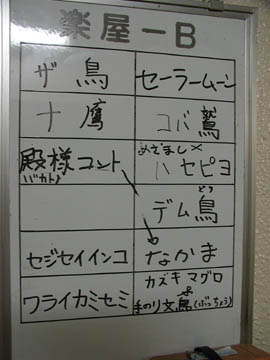 楽屋－B
ザ鳥
セーラームーン
ナ鷹
コバ鷲
殿様コント
(バカトノ)
めざまし×
ハセピヨ
デム鳥
どり
セジセイインコ
なかま
ワライカミセミ
カズキマグロ
手のり文鳥(ぶっちょう)